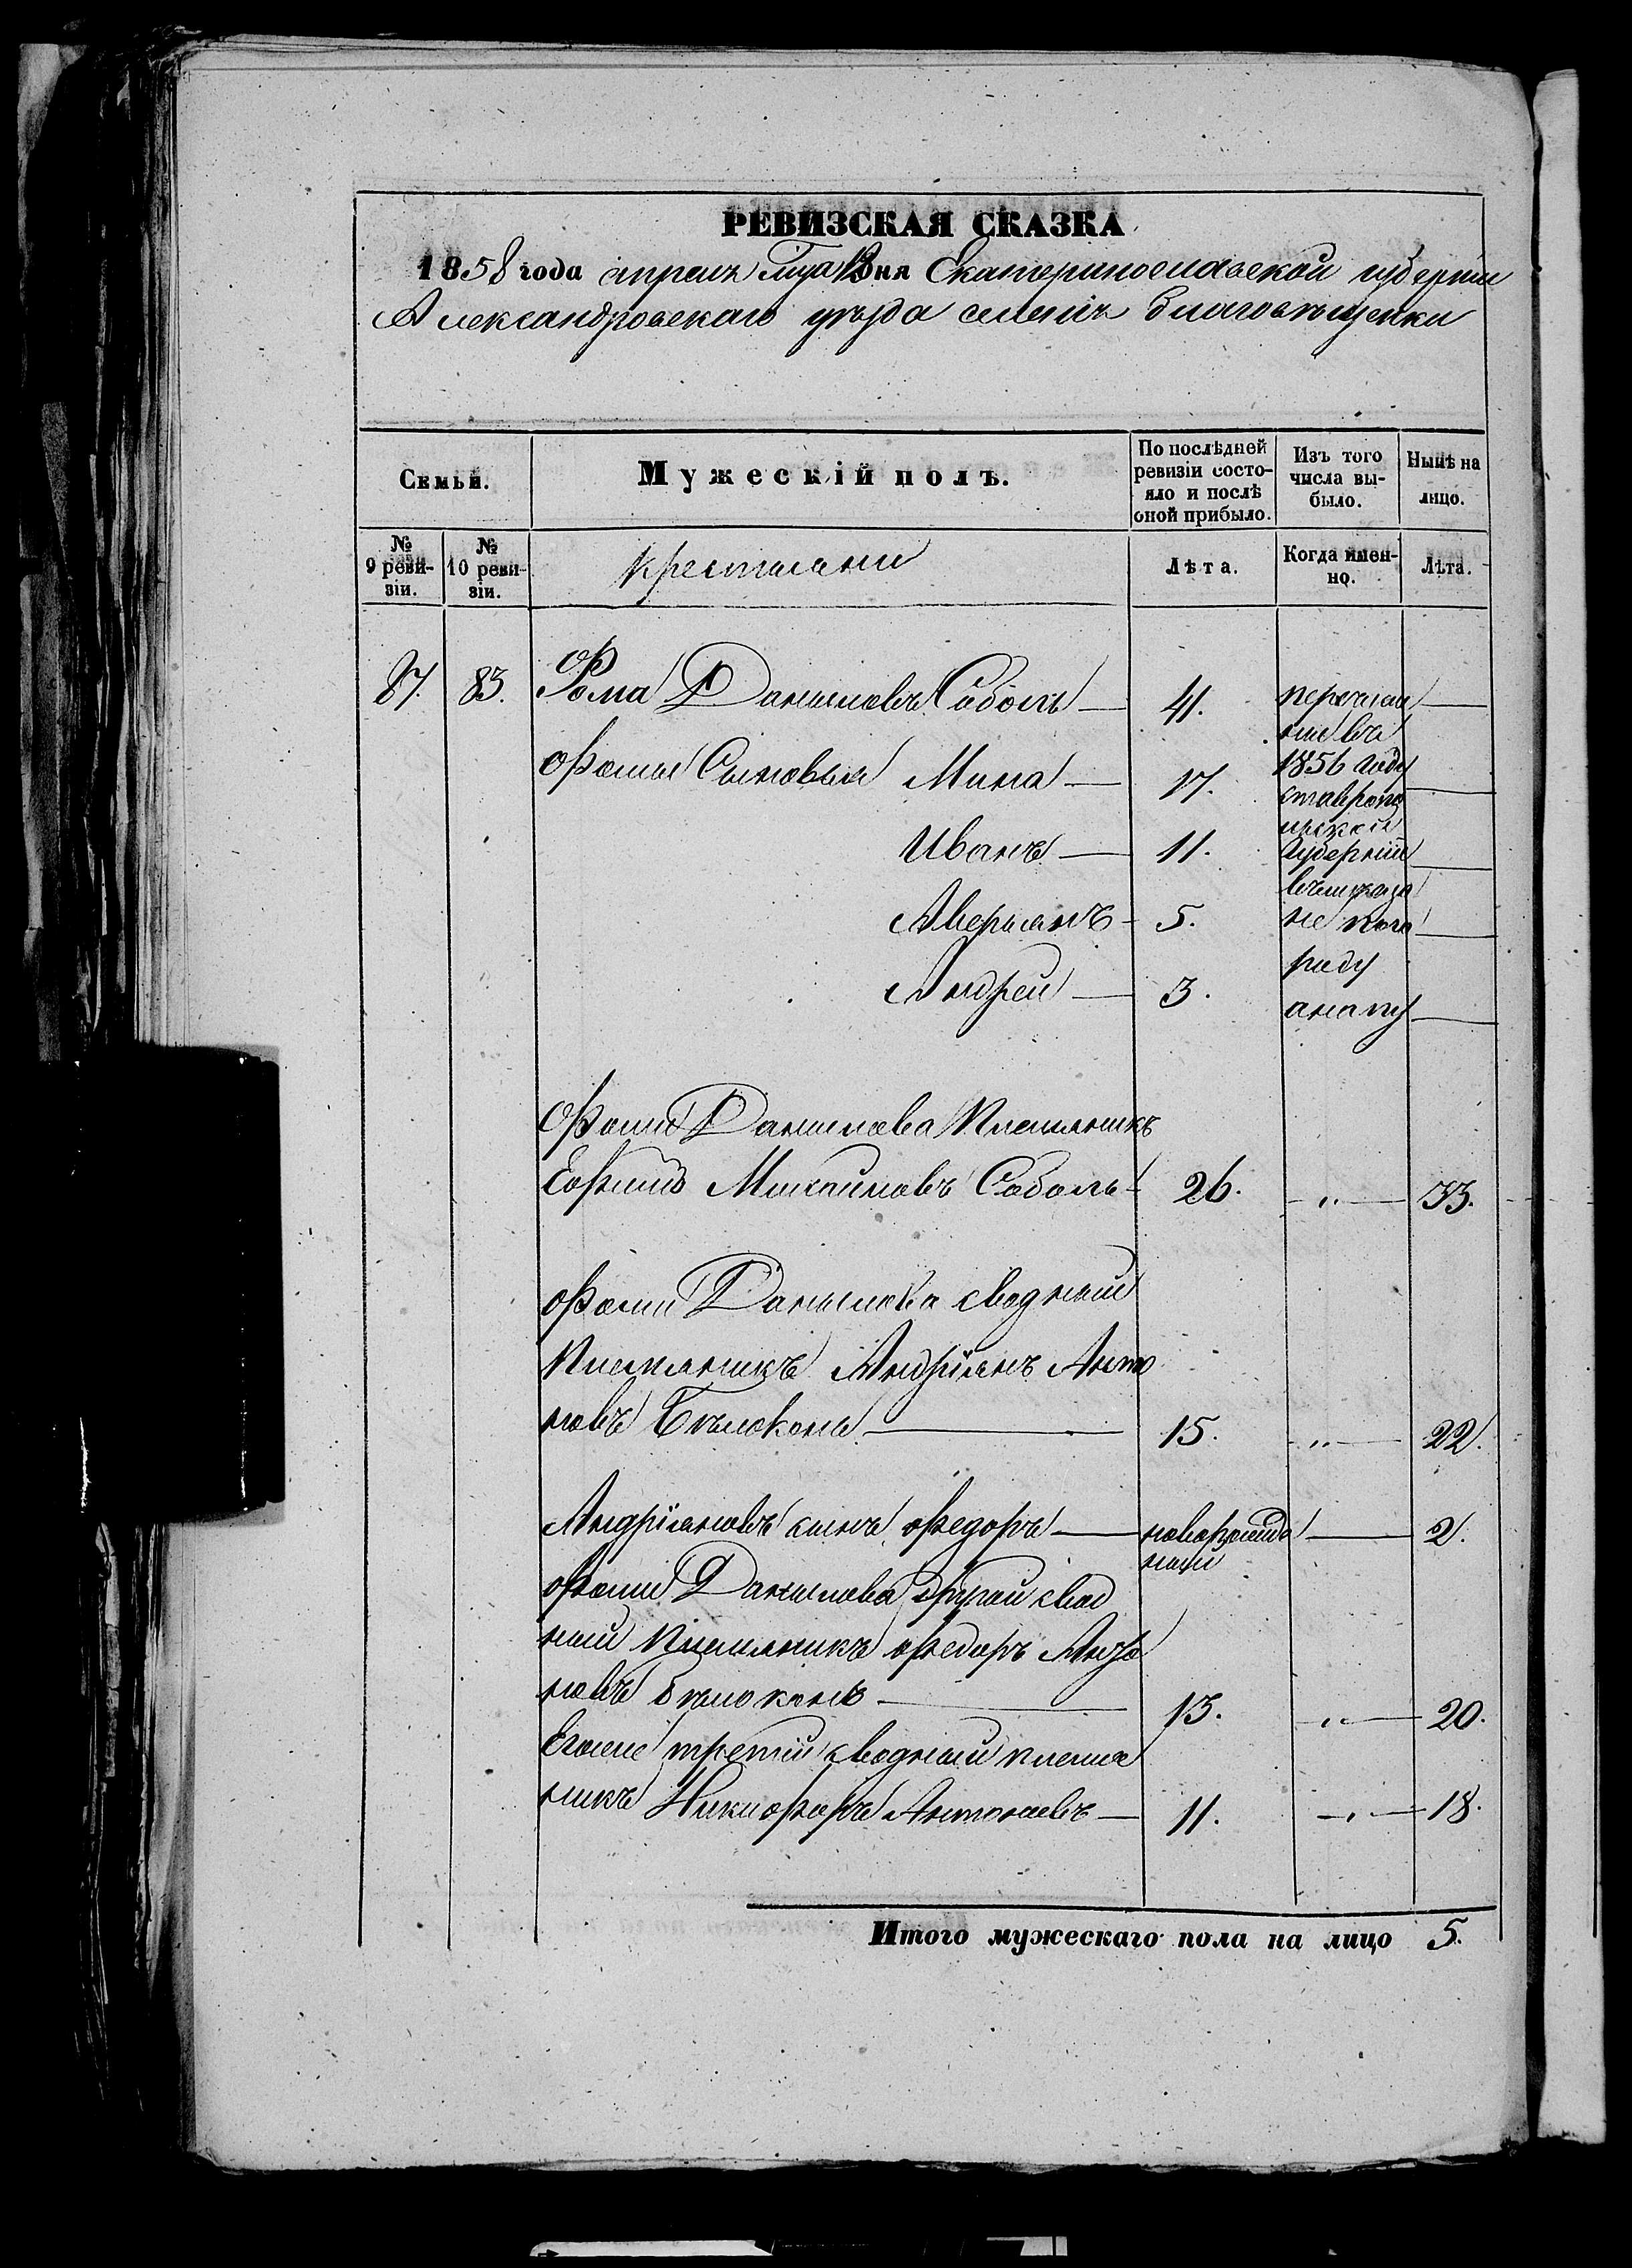 РЕВИЗСКАЯ СКАЗКА
1858 года апреля дня Екатеринославской губерніи
Александровскаго уѣзда селенія Благовѣщенки
Семьи.
Мужескій полъ.
По послѣдней ревизіи состояло и послѣ оной прибыло.
Изъ того числа выбыло.
Нынѣ на лицо.
№ 9 ревизіи.
№ 10 ревизіи.
крестьяне
Лѣта.
Когда именно.
Лѣта.
87. 83. Фома Даниловъ Соболь — 41. перечислены въ —
Фомы Сыновья Мина — 17. 1856 году ставропо —
льской
Иванъ — 11. Губерніи —
Аверьянъ — 5. не въ го —
роду
Андрей — 3. анапу —
Фомы Данилова Племянникъ
Ефимъ Михайловъ Соболь — 26. „ — 33.
Фомы Данилова сводный
Племяникъ Андріянъ Анто
новъ Бѣлоконь — 15. „ — 22.
Андріяновъ сынъ Федоръ — новорожде — 2.
ный
Фомы Данилова другой свод
ный племяникъ Федоръ Анто
новъ Бѣлоконь — 13. „ — 20.
Егоже третій сводный племя
никъ Никифоръ Антоновъ — 11. „ — 18.
Итого мужескаго пола на лицо 5.